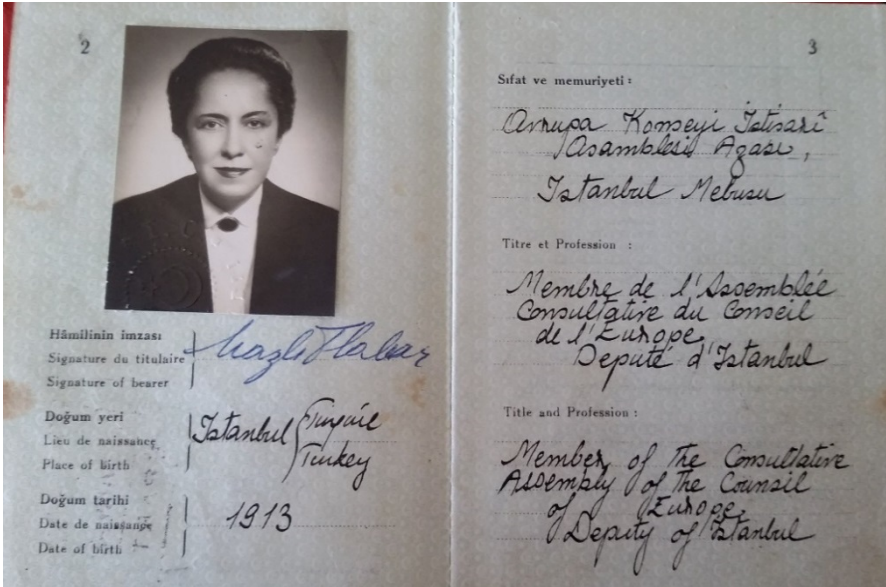 2
Hâmilinin imzası
Signature du titulaire
Signature of bearer
Nazlı Tlabar
Doğum yeri
Lieu de naissance
Place of birth
Istanbul
Turquie
Turkey
Doğum tarihi
Date de naissance
Date of birth
1913
3
Sıfat ve memuriyeti :
Avrupa Konseyi İstişarî
Asamblesi Azası,
Istanbul Mebusu
Titre et Profession :
Membre de l'Assemblée
Consultative du Conseil
de l'Europe,
Deputé d'Istanbul
Title and Profession :
Member of the Consultative
Assembly of the Council
of Europe,
Deputy of Istanbul